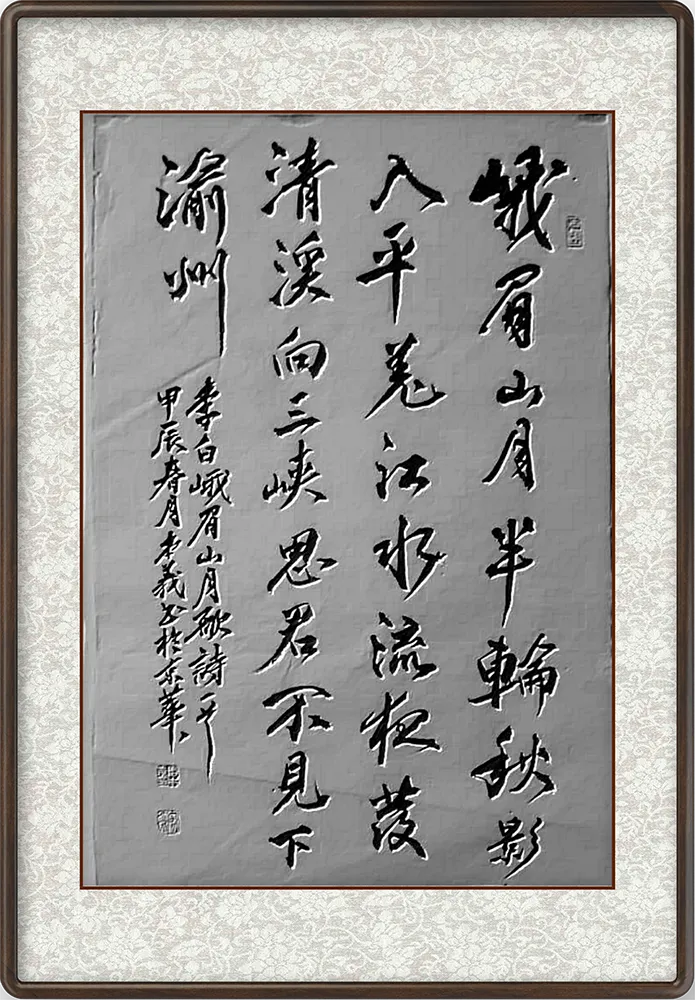 峨眉山月半輪秋影
入平羌江水流夜發
清溪向三峽思君不見下
渝州
李白峨眉山月歌詩一首
甲辰春月義書於京華